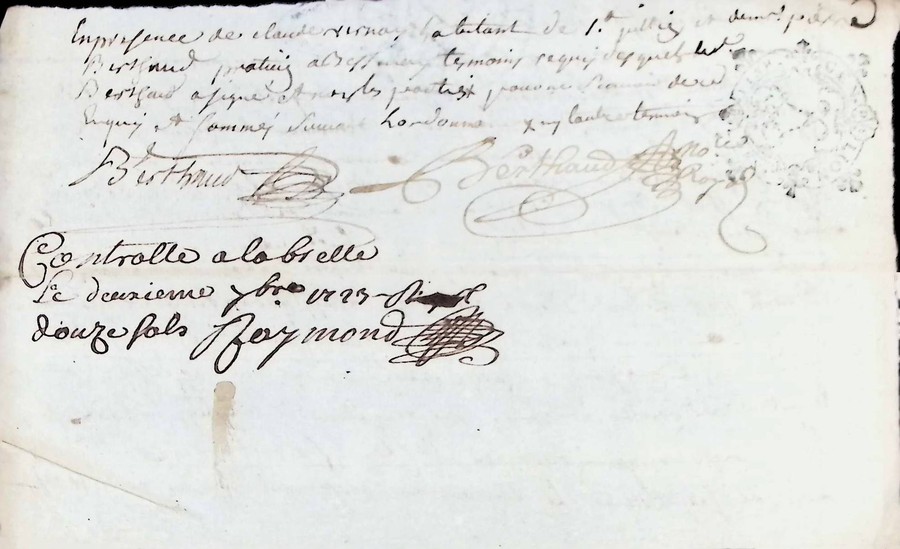 En presence de claude vernay habitant de St jullin et de mre pierre
Berthaud praticien a Bessenay tesmoins requis desquels led
Berthaud a signé et non les parties pour ne scavoir de ce
Enquis et sommés suivant Lordonnance
Berthaud Berthaud nore Royal
Controlle a labrelle
Le deuxieme 7bre 1723
douze sols Raymond